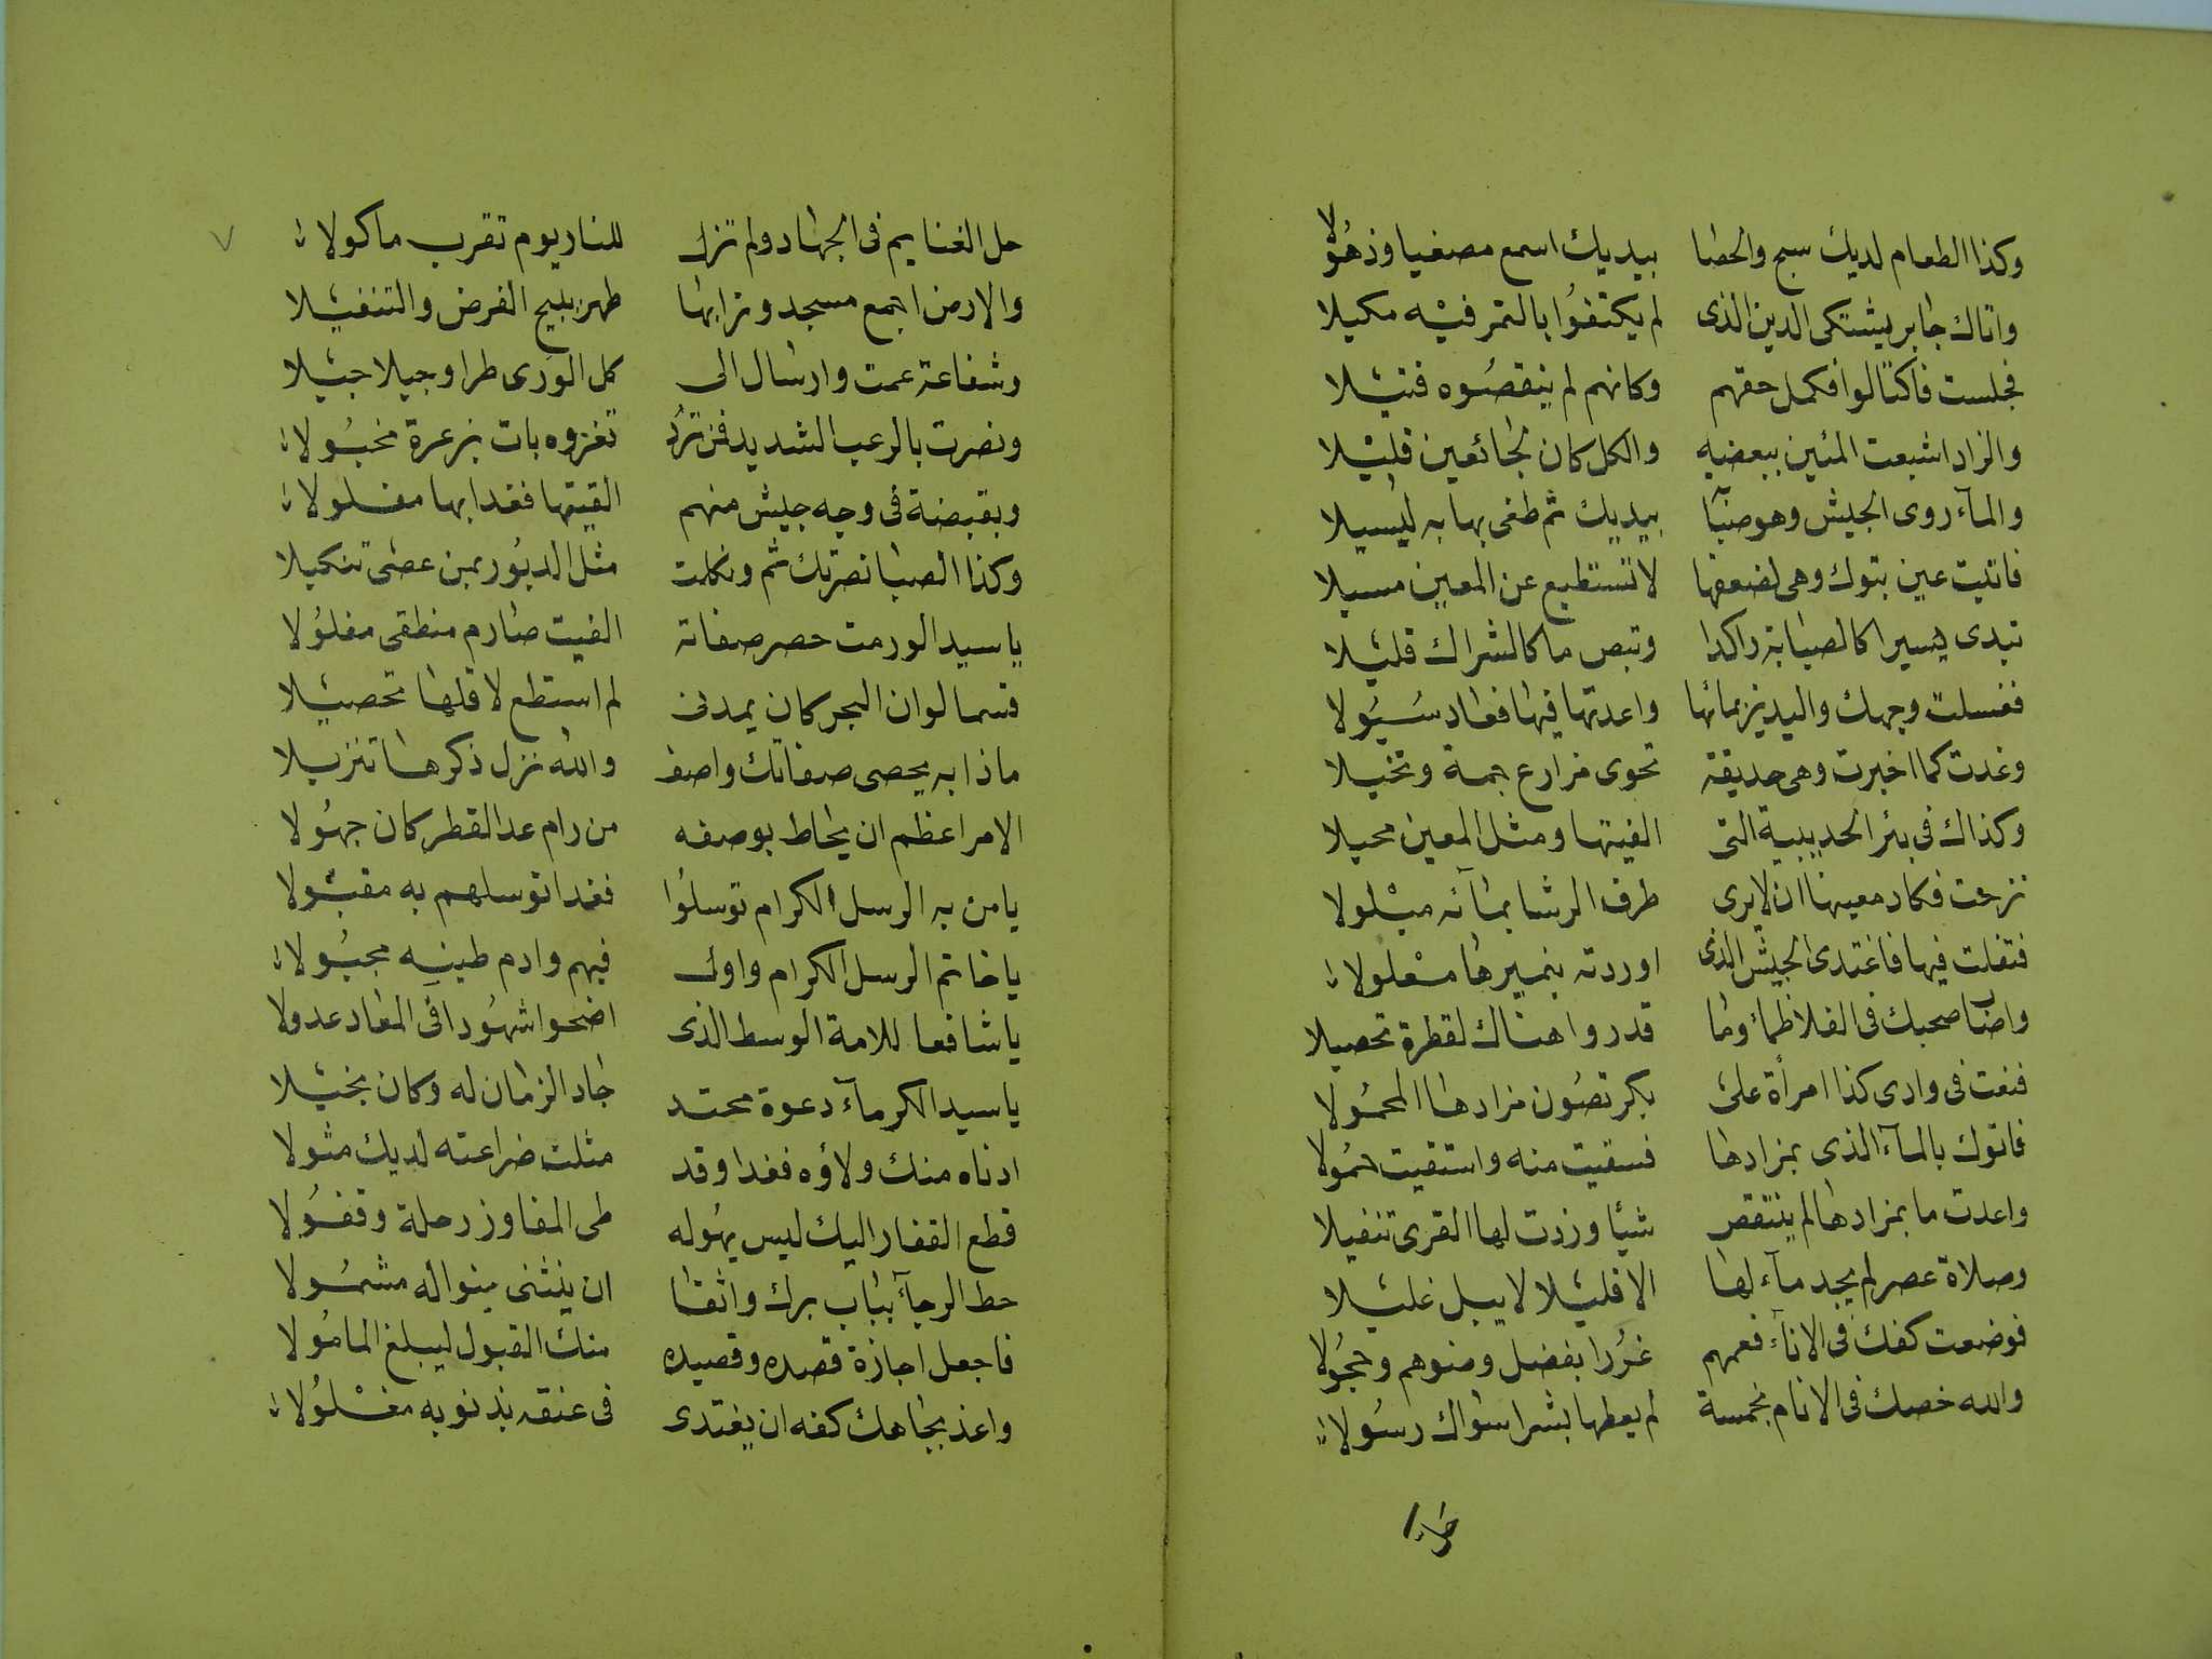 وكذا الطعام لديك سبح والحصا بيديك اسمع مصغيا وذهولا
واتاك جابر يشتكى الدين الذى لم يكتفوا بالتمر فيه مكيلا
فجلست فاكتالوا فكمل حقهم وكانهم لم ينقصوه فتيلا
والزاد اشبعت المئين ببعضه والكل كان لجائعين قليلا
والمآء روى الجيش وهو صبا بيديك ثم طغى بها به ليسيلا
فاتيت عين تبوك وهى لضعفها لا تستطيع عن المعين مسيلا
تبدى يسيرا كالصبابة راكدا وتبص ما كالشراك قليلا
فغسلت وجهك واليدين بمائها واعدتها فيها فعاد سيولا
وغدت كما اخبرت وهى حديقة تحوى مزارع جمة ونخيلا
وكذاك فى بئر الحديبية التى الفيتها ومثل المعين محيلا
نزحت فكاد معينها ان لا يرى طرف الرشا بمآئه مبلولا
فتفلت فيها فاغتدى الجيش الذى اوردته بنميرها معلولا
واصاب صحبك فى الفلا ظمأ وما قدروا هناك لقطرة تحصيلا
فنعت فى وادى كذا امرأة على بكر تصون مزادها المحمولا
فاتوك بالمآء الذى بمزادها فسقيت منه واستقيت حمولا
واعدت ما بمزادها لم ينتقص شيئا وزدت لها القرى تنفيلا
وصلاة عصر لم يجد مآء لها الا قليلا لا يبل غليلا
فوضعت كفك فى الانآء فعمهم غررا بفضل وضوهم وحجولا
والله خصك فى الانام بخمسة لم يعطها بشرا سواك رسولا
حل
حل الغنايم فى الجهاد ولم تزل للنار يوم تقرب ماكولا
والارض اجمع مسجد وترابها طهر يبيح الفرض والتنفيلا
وشفاعة عمت وارسال الى كل الورى طرا وجيلا جيلا
ونصرت بالرعب الشديد فمن ترد تغزوه بات بزعرة مخبولا
وبقبضة فى وجه جيش منهم القيتها فغدا بها مفلولا
وكذا الصبا نصرتك ثم ونكلت مثل الدبور بمن عصى تنكيلا
يا سيدا لو رمت حصر صفاته الفيت صارم منطقى مفلولا
قسما لو ان البحر كان يمدنى لم استطع لاقلها تحصيلا
ماذا به يحصى صفاتك واصف والله نزل ذكرها تنزيلا
الامر اعظم ان يحاط بوصفه من رام عد القطر كان جهولا
يا من به الرسل الكرام توسلوا فغدا توسلهم به مقبولا
يا خاتم الرسل الكرام واول فيهم وادم طينه مجبولا
يا شافعا للامة الوسط الذى اضحوا شهودا فى المعاد عدولا
يا سيد الكرمآء دعوة محتد جاد الزمان له وكان بخيلا
ادناه منك ولاؤه فغدا وقد مثلت ضراعته لديك مثولا
قطع القفار اليك ليس يهوله طى المفاوز رحلة وقفولا
حط الرجآء بباب برك واثقا ان ينثنى بنواله مشمولا
فاجعل اجازة قصده وقصيده منك القبول ليبلغ المامولا
واعذ بجاهك كفه ان يغتدى فى عنقه بذنوبه مغلولا